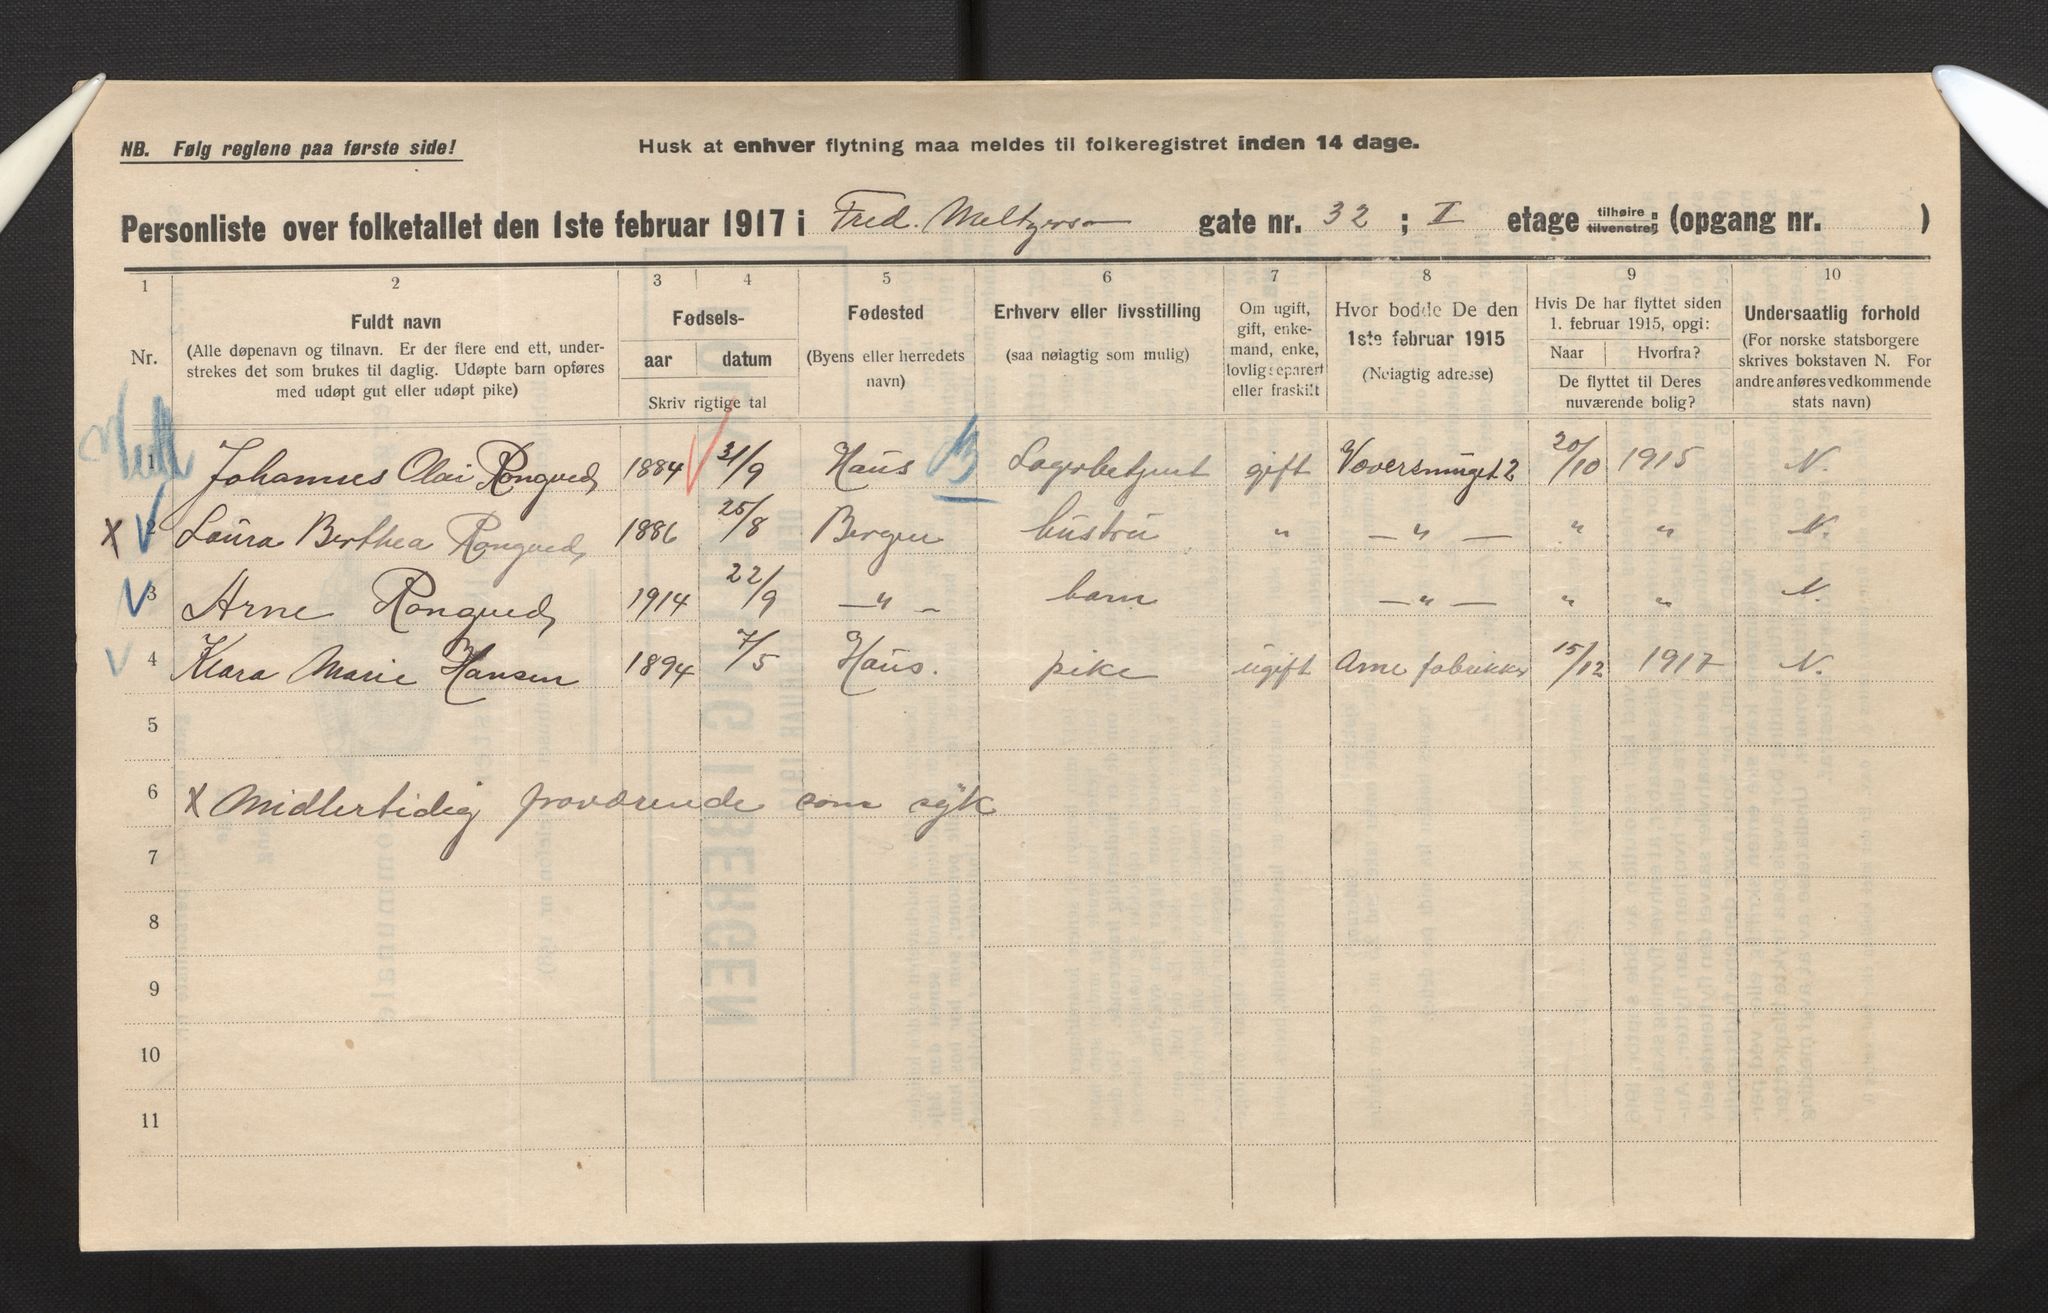 NB. Følg reglene paa første side!
Husk at enhver flytning maa meldes til folkeregistret inden 14 dage.
Personliste over folketallet den 1ste februar 1917 i Fred. Meltzers gate nr. 32 ; II etage tilhøire tilvenstre (opgang nr. )
1 2 3 4 5 6 7 8 9 10
Nr.
Fuldt navn
(Alle døpenavn og tilnavn. Er der flere end ett, under-
strekes det som brukes til daglig. Udøpte barn opføres
med udøpt gut eller udøpt pike)
Fødsels-
aar datum
Skriv rigtige tal
Fødested
(Byens eller herredets
navn)
Erhverv eller livsstilling
(saa nøiagtig som mulig)
Om ugift,
gift, enke-
mand, enke,
lovlig separert
eller fraskilt
Hvor bodde De den
1ste februar 1915
(Nøiagtig adresse)
Hvis De har flyttet siden
1. februar 1915, opgi:
Naar Hvorfra?
De flyttet til Deres
nuværende bolig?
Undersaatlig forhold
(For norske statsborgere
skrives bokstaven N. For
andre anføres vedkommende
stats navn)
1 Johannes Olai Rongved 1884 31/9 Haus Lagerbetjent gift Væversmuget 2 20/10 1915 N.
x 2 Laura Berthea Rongved 1886 25/8 Bergen hustru " — " — " " N.
3 Arne Rongved 1914 22/9 — " — barn — " — " " N.
4 Klara Marie Hansen 1894 7/5 Haus. pike ugift Arne fabrikker 15/12 1917 N.
5
6 x Midlertidig fraværende som syk
7
8
9
10
11